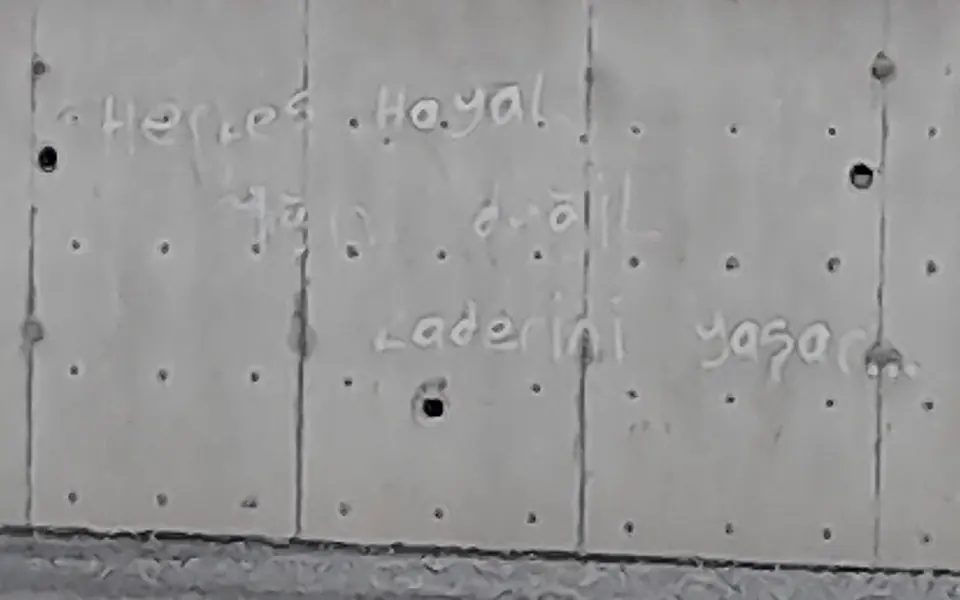 Herkes Hayal
değil
Kaderini yaşar...